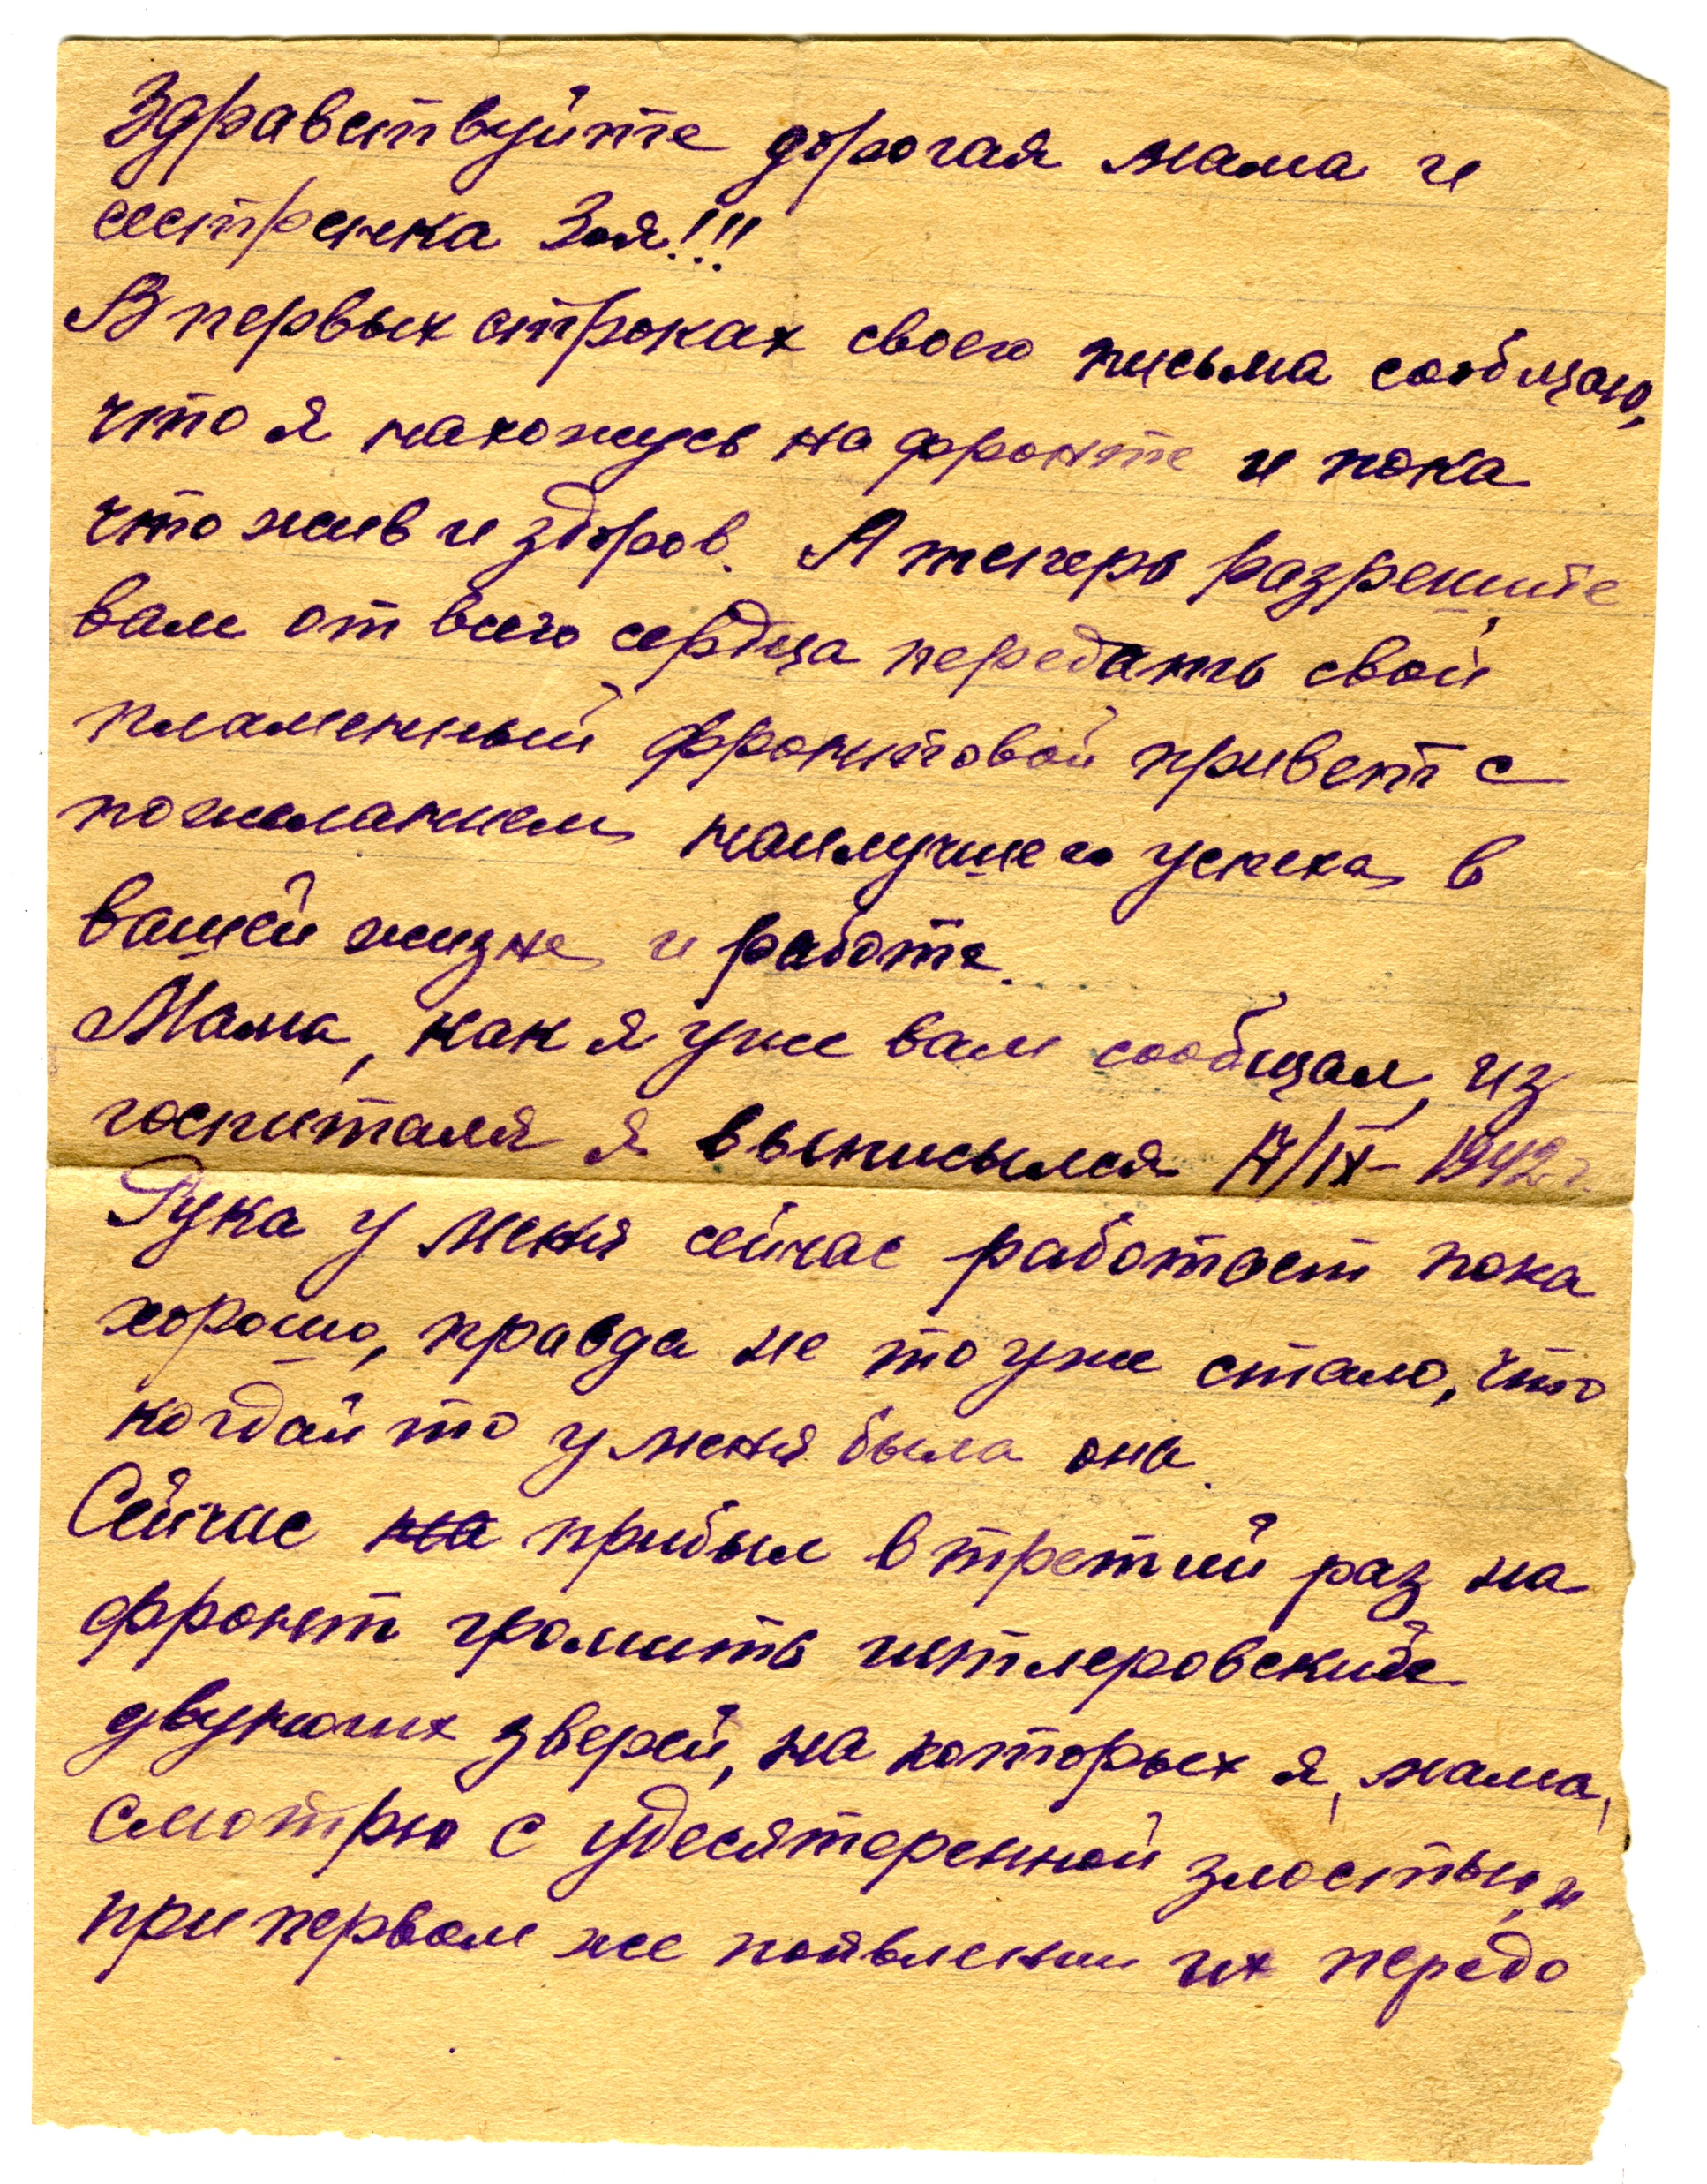 Здравствуйте дорогая мама и
сестренка Зоя!!!
В первых строках своего письма сообщаю,
что я нахожусь на фронте и пока
что жив и здоров. А теперь разрешите
вам от всего сердца передать свой
пламенный фронтовой привет с
пожеланием наилучшего успеха в
вашей жизне и работе.
Мама, как я уже вам сообщал, из
госпиталя я выписылся 17/IX-1942 г.
Рука у меня сейчас работает пока
хорошо, правда не то уже стало, что
когдай то у меня была она.
Сейчас на прибыл в третий раз на
фронт громить гитлеровских
двуногих зверей, на которых я, мама,
смотрю с удесятеренной злостью, и
при первом же появлении их передо